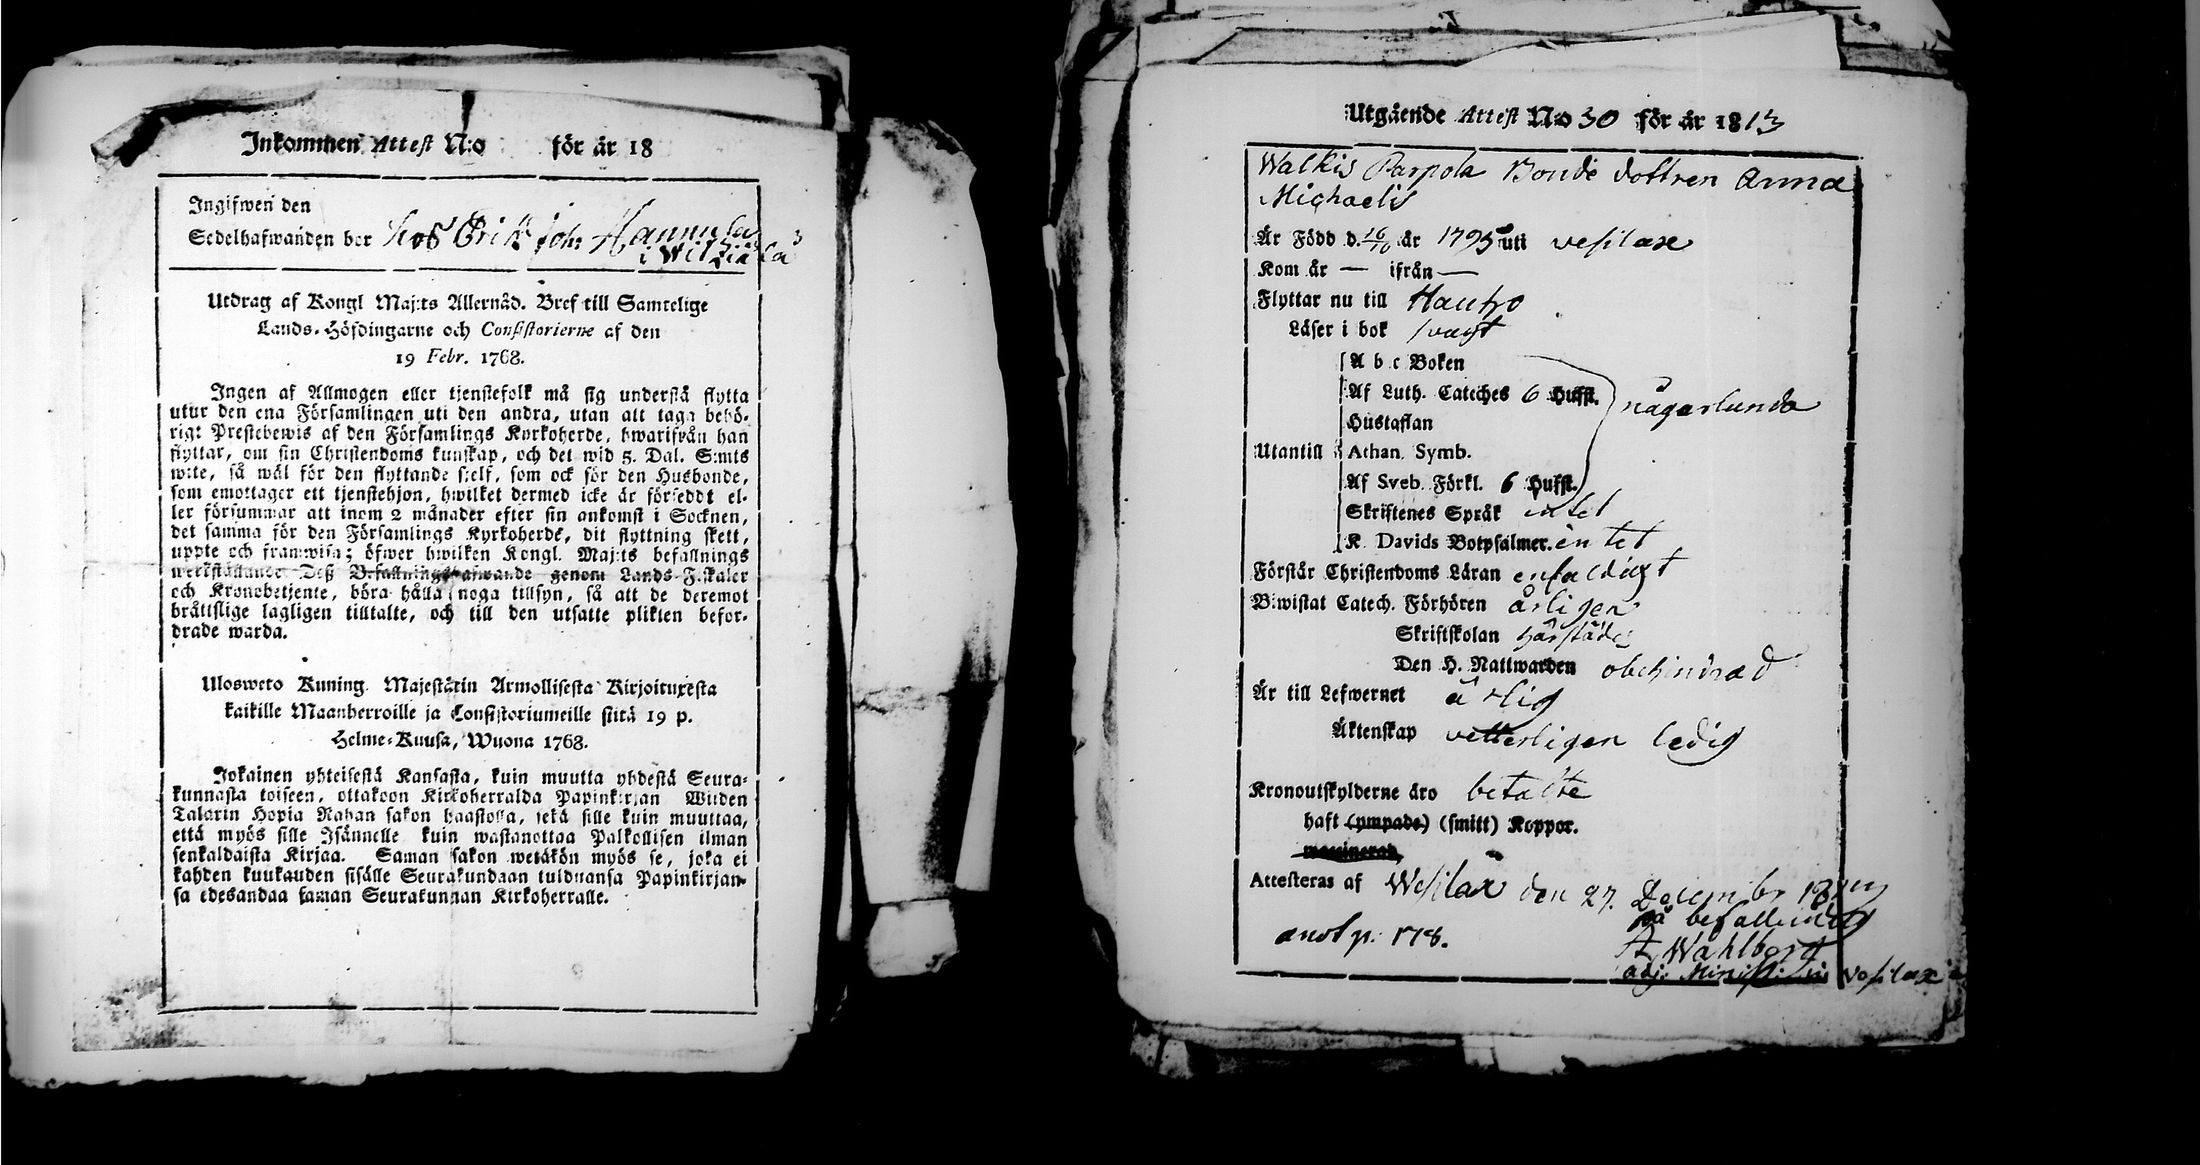 Inkommen Attest N:o för år 18
Ingifwen den
Sedelhafwanden bor hos Erik Joh: Hannula
i Wilkiälä
Utdrag af Kongl Maj:ts Allernåd. Bref till Samtelige
Lands-Höfdingarne och Consistorierne af den
19 Febr. 1768.
Ingen af Allmogen eller tjenstefolk må sig understå flytta
utur den ena Församlingen uti den andra, utan att taga behö-
rigt Prestebewis af den Församlings Kyrkoherde, hwarifrån han
flyttar, om sin Christendoms kunskap, och det wid 5. Dal. S:mts
wite, så wäl för den flyttande sjelf, som ock för den Husbonde,
som emottager ett tjenstehjon, hwilket dermed icke är försedt el-
ler försummar att inom 2 månader efter sin ankomst i Socknen,
det samma för den Församlings Kyrkoherde, dit flyttning skett,
uppte och framwisa; öfwer hwilken Kongl. Maj:ts befallnings
werkställande Deß Befallningshafwande genom Lands-Fiskaler
och Kronobetjente, böra hålla noga tillsyn, så att de deremot
bråttslige lagligen tilltalte, och till den utsatte plikten befor-
drade warda.
Ulosweto Kuning. Majestätin Armollisesta Kirjoituxesta
kaikille Maanherroille ja Consistoriumeille siitä 19 p.
Helme-Kuusa, Wuona 1768.
Jokainen yhteisestä Kansasta, kuin muutta yhdestä Seura-
kunnasta toiseen, ottakoon Kirkoherralda Papinkirjan Wiiden
Talarin Hopia Rahan sakon haastolla, sekä sille kuin muuttaa,
että myös sille Isännelle kuin wastanottaa Palkollisen ilman
senkaldaista Kirjaa. Saman sakon wetäkön myös se, joka ei
kahden kuukauden sisälle Seurakundaan tulduansa Papinkirjan-
sa edesandaa saman Seurakunnan Kirkoherralle.
Utgående Attest N:o 30 för år 1813
Walkis Parpola Bonde dottren Anna
Michaelis
Är Född d. 16/10 år 1795 uti vesilax
Kom år — ifrån —
Flyttar nu till Hauho
Läser i bok svagt
A b c Boken
Af Luth. Cateches 6 Hufst. någorlunda
Hustaflan
Utantill Athan. Symb.
Af Sveb. Förkl. 6 Hufst.
Skriftenes Språk intet
K. Davids Botpsalmer. intet
Förstår Christendoms Läran enfaldigt
Biwistat Catech. Förhören årligen
Skriftskolan härstädes
Den H. Nattwarden obehindrad
Är till Lefwernet ärlig
Äktenskap vetterligen ledig
Kronoutskylderne äro betalte
haft (ympade) (smitt) Koppor.
Attesteras af Wesilax den 27. December
på befallning
anot p: 178. A Wahlberg
adj. Minist: in Vesilax